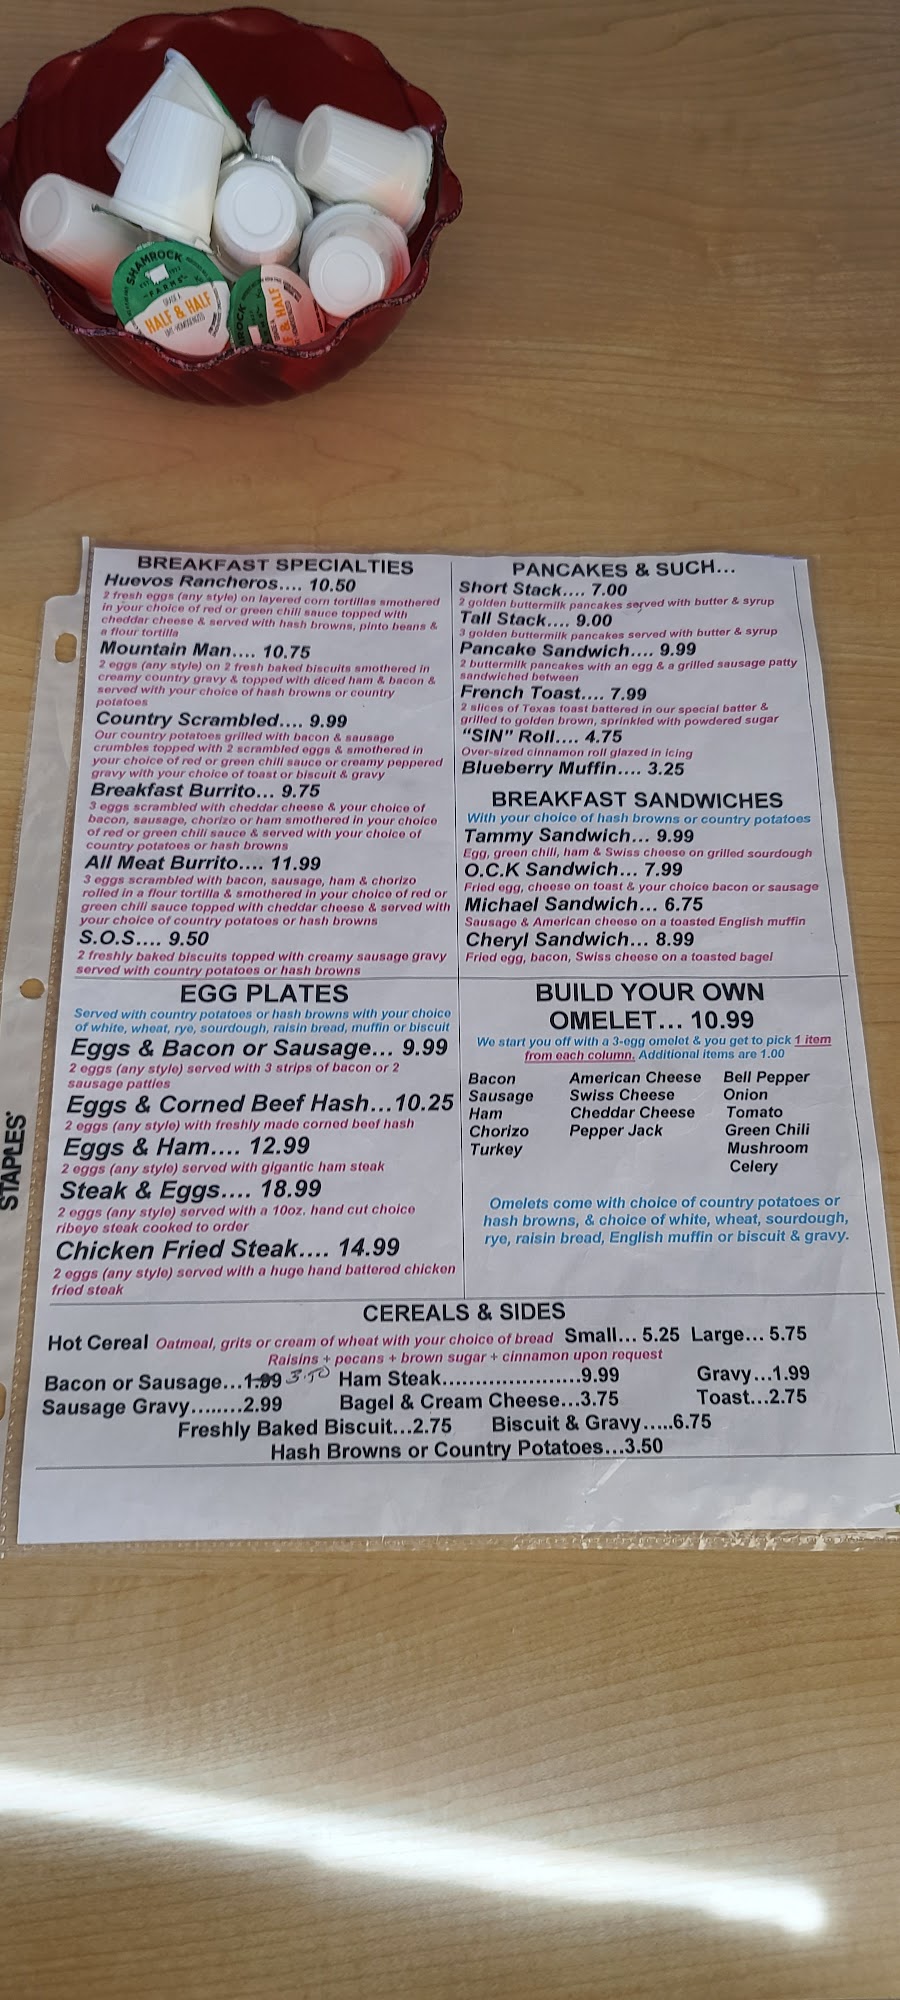 SHAMROCK
FARMS
GRADE A
HALF & HALF
STAPLES
BREAKFAST SPECIALTIES
Huevos Rancheros.... 10.50
2 fresh eggs (any style) on layered corn tortillas smothered
in your choice of red or green chili sauce topped with
cheddar cheese & served with hash browns, pinto beans &
a flour tortilla
Mountain Man.... 10.75
2 eggs (any style) on 2 fresh baked biscuits smothered in
creamy country gravy & topped with diced ham & bacon &
served with your choice of hash browns or country
potatoes
Country Scrambled.... 9.99
Our country potatoes grilled with bacon & sausage
crumbles topped with 2 scrambled eggs & smothered in
your choice of red or green chili sauce or creamy peppered
gravy with your choice of toast or biscuit & gravy
Breakfast Burrito... 9.75
3 eggs scrambled with cheddar cheese & your choice of
bacon, sausage, chorizo or ham smothered in your choice
of red or green chili sauce & served with your choice of
country potatoes or hash browns
All Meat Burrito.... 11.99
3 eggs scrambled with bacon, sausage, ham & chorizo
rolled in a flour tortilla & smothered in your choice of red or
green chili sauce topped with cheddar cheese & served with
your choice of country potatoes or hash browns
S.O.S.... 9.50
2 freshly baked biscuits topped with creamy sausage gravy
served with country potatoes or hash browns
PANCAKES & SUCH...
Short Stack.... 7.00
2 golden buttermilk pancakes served with butter & syrup
Tall Stack.... 9.00
3 golden buttermilk pancakes served with butter & syrup
Pancake Sandwich.... 9.99
2 buttermilk pancakes with an egg & a grilled sausage patty
sandwiched between
French Toast.... 7.99
2 slices of Texas toast battered in our special batter &
grilled to golden brown, sprinkled with powdered sugar
"SIN" Roll.... 4.75
Over-sized cinnamon roll glazed in icing
Blueberry Muffin.... 3.25
BREAKFAST SANDWICHES
With your choice of hash browns or country potatoes
Tammy Sandwich... 9.99
Egg, green chili, ham & Swiss cheese on grilled sourdough
O.C.K Sandwich... 7.99
Fried egg, cheese on toast & your choice bacon or sausage
Michael Sandwich... 6.75
Sausage & American cheese on a toasted English muffin
Cheryl Sandwich... 8.99
Fried egg, bacon, Swiss cheese on a toasted bagel
EGG PLATES
Served with country potatoes or hash browns with your choice
of white, wheat, rye, sourdough, raisin bread, muffin or biscuit
Eggs & Bacon or Sausage... 9.99
2 eggs (any style) served with 3 strips of bacon or 2
sausage patties
Eggs & Corned Beef Hash...10.25
2 eggs (any style) with freshly made corned beef hash
Eggs & Ham.... 12.99
2 eggs (any style) served with gigantic ham steak
Steak & Eggs.... 18.99
2 eggs (any style) served with a 10oz. hand cut choice
ribeye steak cooked to order
Chicken Fried Steak.... 14.99
2 eggs (any style) served with a huge hand battered chicken
fried steak
BUILD YOUR OWN
OMELET... 10.99
We start you off with a 3-egg omelet & you get to pick 1 item
from each column. Additional items are 1.00
Bacon American Cheese Bell Pepper
Sausage Swiss Cheese Onion
Ham Cheddar Cheese Tomato
Chorizo Pepper Jack Green Chili
Turkey Mushroom
Celery
Omelets come with choice of country potatoes or
hash browns, & choice of white, wheat, sourdough,
rye, raisin bread, English muffin or biscuit & gravy.
CEREALS & SIDES
Hot Cereal Oatmeal, grits or cream of wheat with your choice of bread Small... 5.25 Large... 5.75
Raisins + pecans + brown sugar + cinnamon upon request
Bacon or Sausage...1.99 3.50 Ham Steak.....................9.99 Gravy...1.99
Sausage Gravy........2.99 Bagel & Cream Cheese...3.75 Toast...2.75
Freshly Baked Biscuit...2.75 Biscuit & Gravy.....6.75
Hash Browns or Country Potatoes...3.50